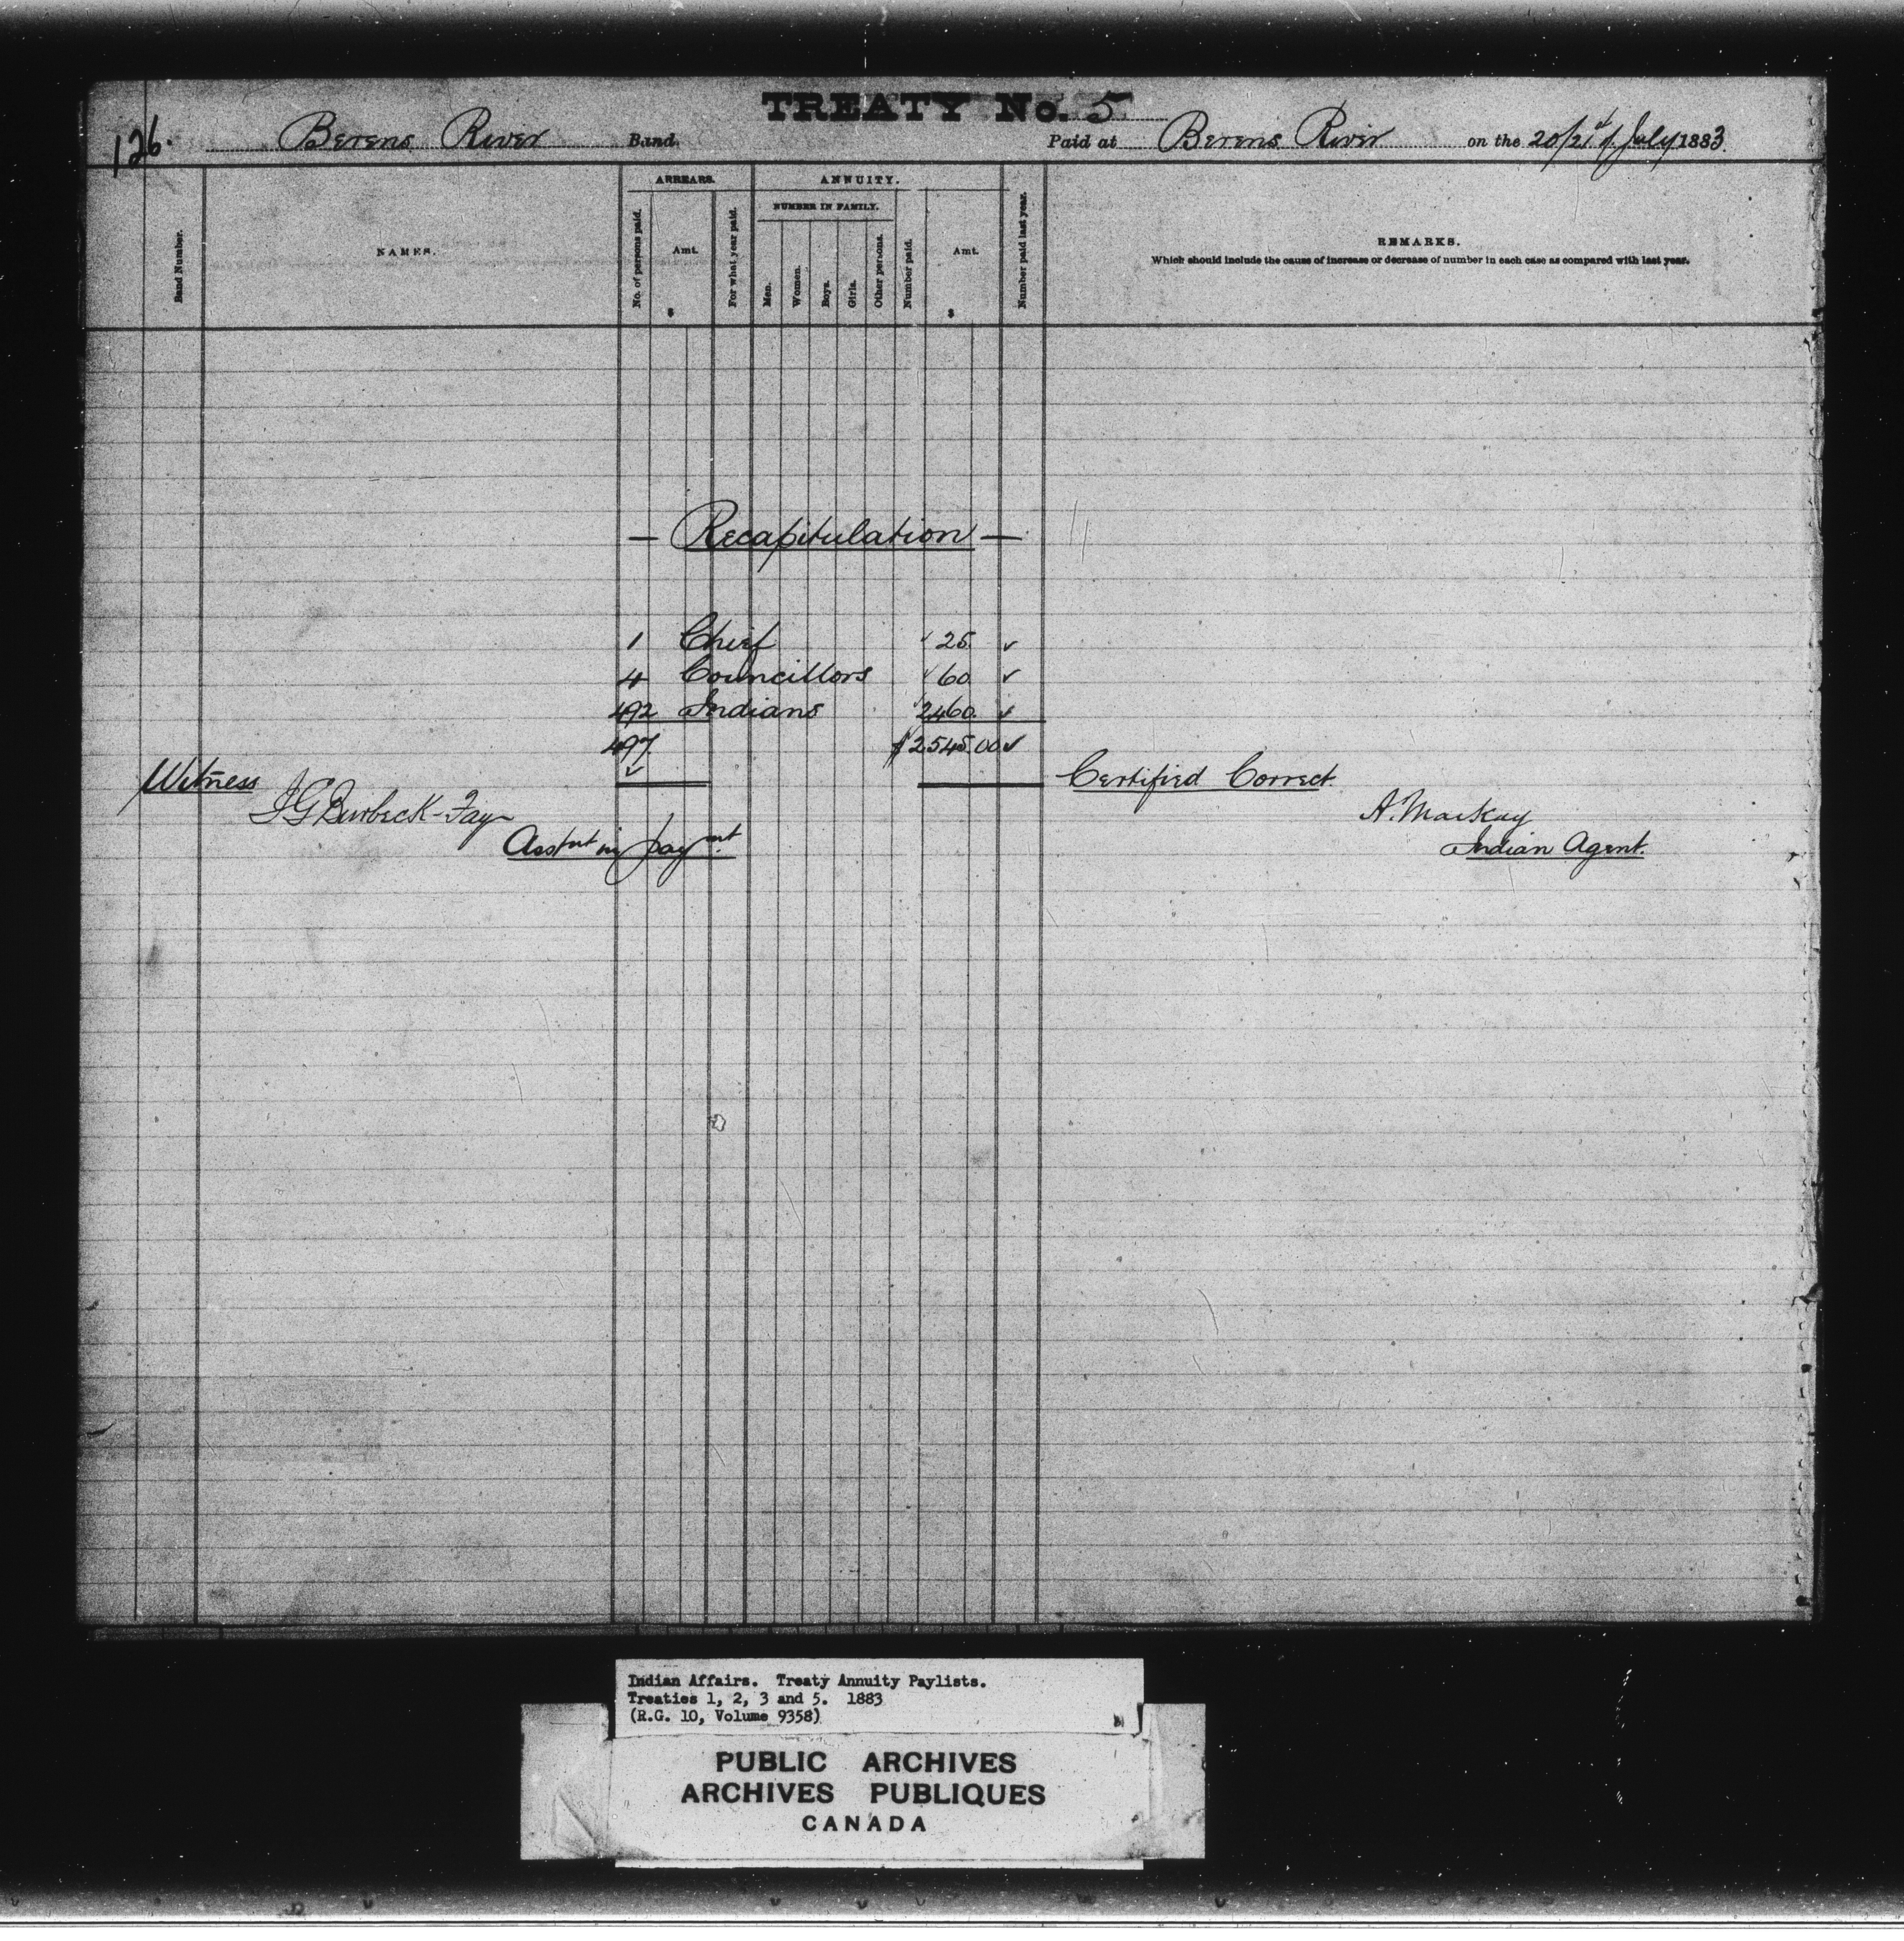 TREATY No. 5
126. Berens River Band. Paid at Berens River on the 20/21st of July 1883.
Band Number.
NAMES.
ARREARS.
No. of persons paid.
Amt.
$
For what year paid.
ANNUITY.
NUMBER IN FAMILY.
Men.
Women.
Boys.
Girls.
Other persons.
Number paid.
Amt.
$
Number paid last year.
REMARKS.
Which should include the cause of increase or decrease of number in each case as compared with last year.
— Recapitulation —
1 Chief ✓ 25. ✓
4 Councillors ✓ 60 ✓
492 Indians ✓ 2460. ✓
497 $2545.00 ✓
✓
Witness
Certified Correct.
J G Burbeck-Fay
A. MacKay
Asst nt in paymt.
Indian Agent.
Indian Affairs. Treaty Annuity Paylists.
Treaties 1, 2, 3 and 5. 1883
(R.G. 10, Volume 9358)
PUBLIC ARCHIVES
ARCHIVES PUBLIQUES
CANADA